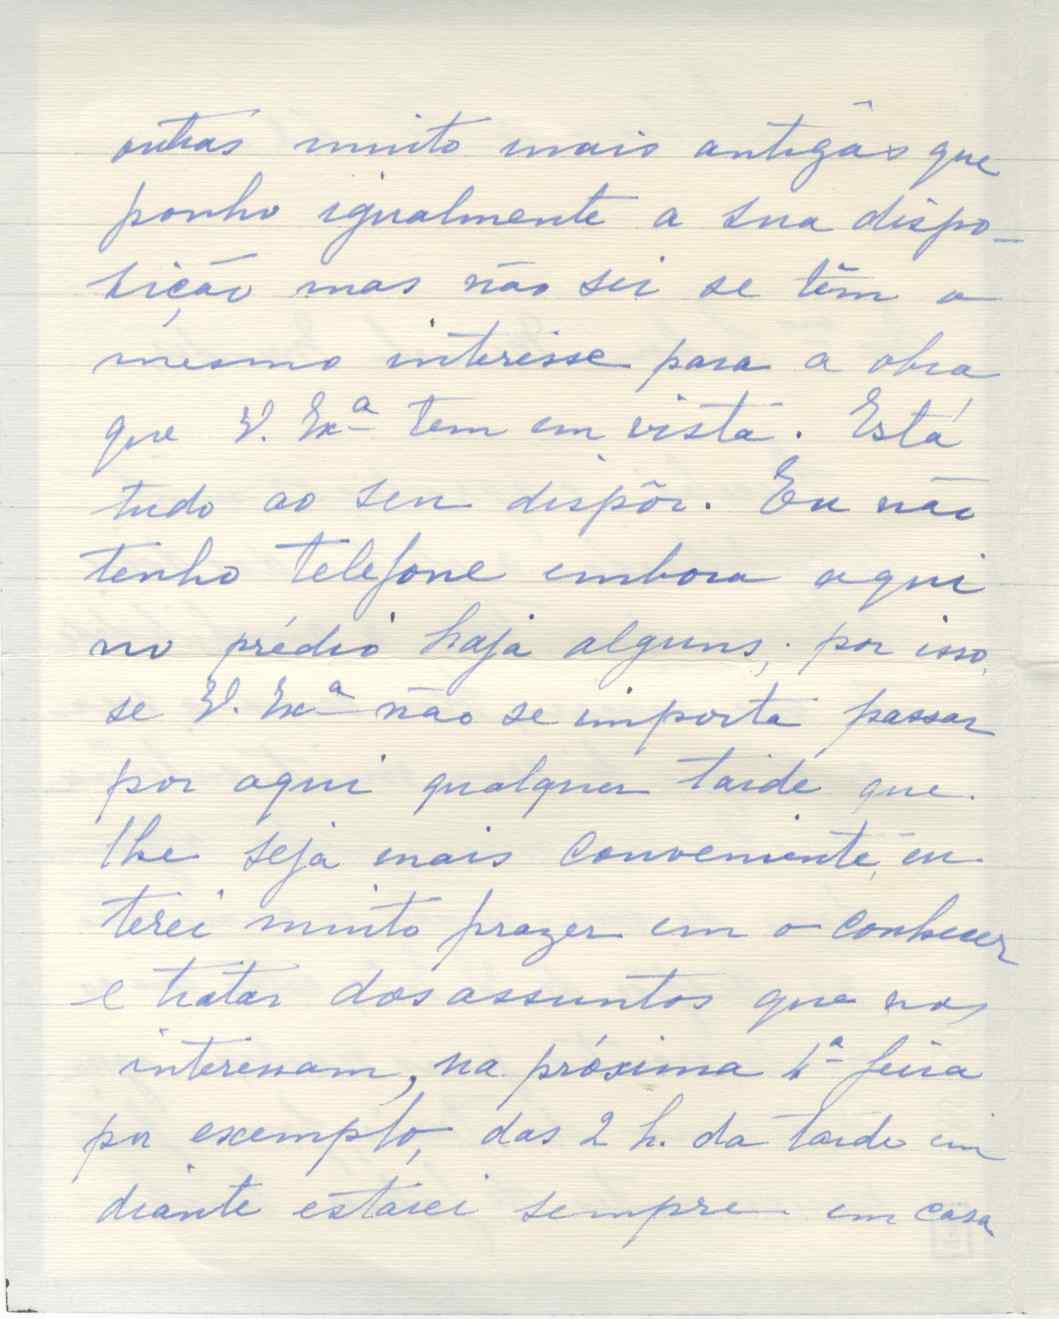 outras muito mais antigâs que
ponho igualmente a sua dispo-
sição mas não sei se têm o
mesmo interesse para a obra
que V. Exª tem em vista. Está
tudo ao seu dispôr. Eu não
tenho telefone embora aqui
no prédio haja alguns; por isso,
se V. Exª não se importa passar
por aqui qualquer tarde que
lhe seja mais conveniente, eu
terei muito prazer em o conhecer
e tratar dos assuntos que nos
interessam, na próxima 4ª feira
por exemplo, das 2 h. da tarde em
diante estarei sempre em casa